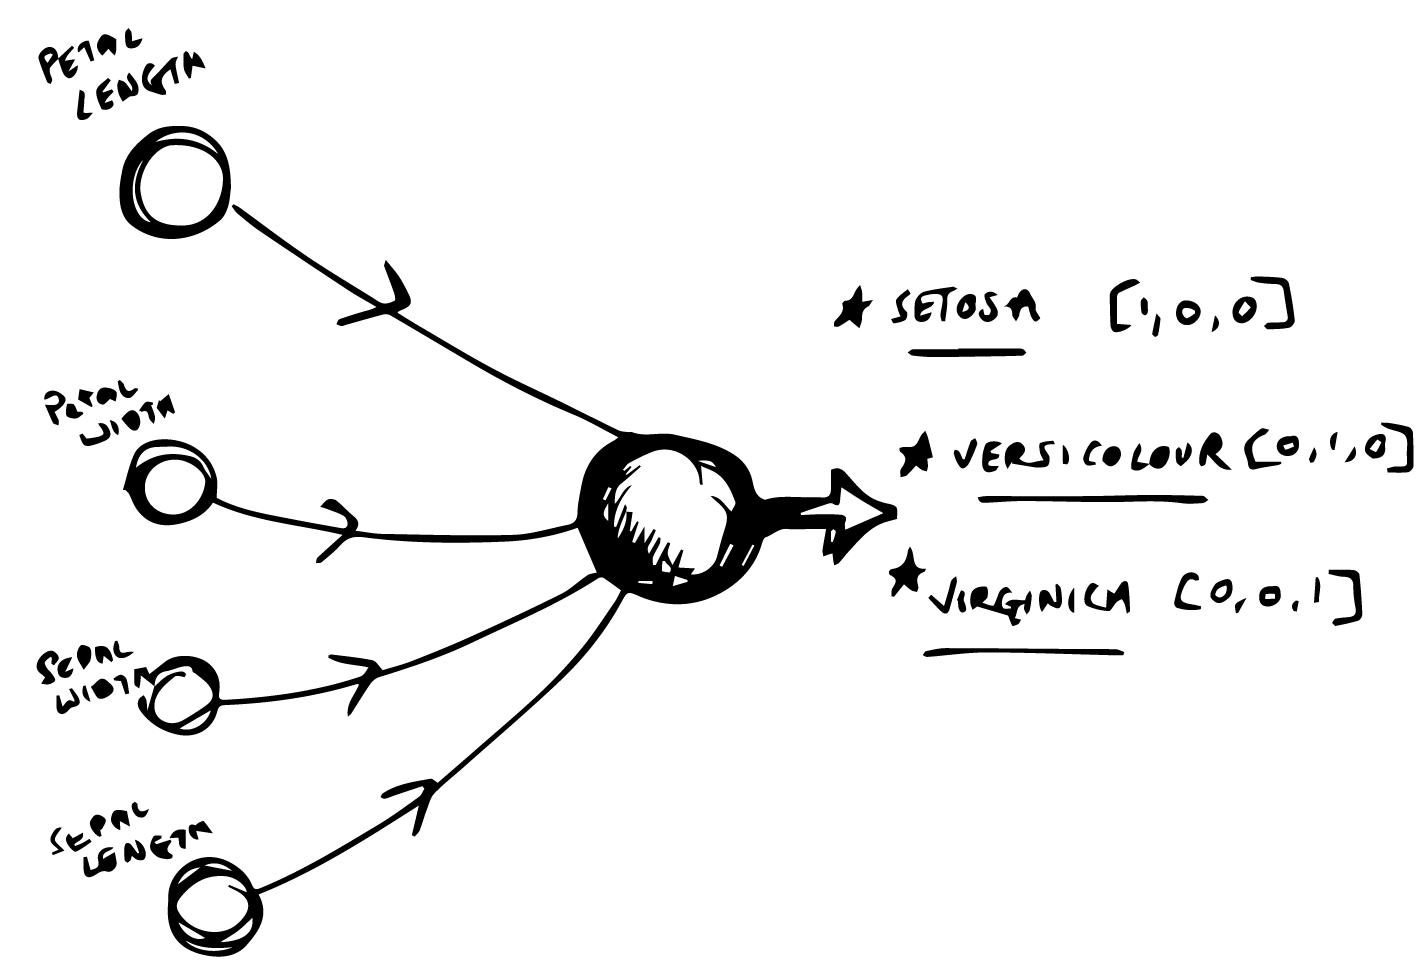 PETAL
LENGTH
PETAL
WIDTH
SEPAL
WIDTH
SEPAL
LENGTH
SETOSA [1,0,0]
VERSICOLOUR [0,1,0]
VIRGINICA [0,0,1]